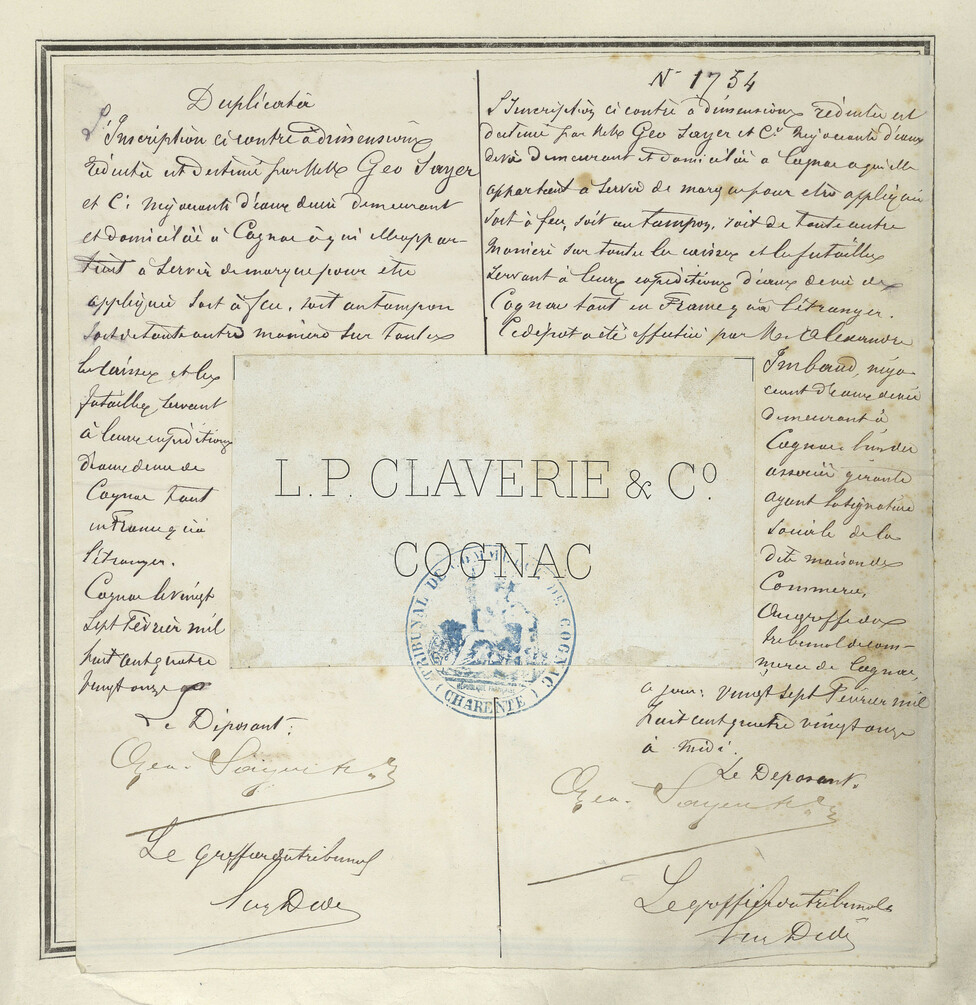 Duplicata
L'Inscription ci contre à dimensions
réduites est destiné par MM Geo Sayer
et Cie Négociants d'eaux devie demeurant
et domiciliés à Cognac à qui elle appar-
tient à servir de marque pour etre
appliquée soit à feu, soit au tampon
soit de toute autre manière sur toutes
les caisses et les
futailles servant
à leurs expéditions
d'eaux devie de
Cognac tant
en France qu'à
l'étranger.
Cognac le vingt
sept Février mil
huit cent quatre
vingt onze
Le Déposant.
Geo. Sayer & Co
Le greffier du tribunal
N° 1754
L'Inscription ci contre à dimensions réduites est
destiné par MM Geo Sayer et Cie Négociants d'eaux
devie demeurant et domiciliés à Cognac à qui elle
appartient à servir de marque pour etre appliquée
soit à feu, soit au tampon, soit de toute autre
manière sur toutes les caisses et les futailles
servant à leurs expéditions d'eaux devie de
Cognac tant en France qu'à l'étranger.
Ce dépot a été effectué par Mr Alexandre
Imbaud, négo-
ciant d'eaux devie
demeurant à
Cognac l'un des
associés gérants
ayant la signature
sociale de la
dite maison de
Commerce,
Au greffe du
tribunal de com-
merce de Cognac,
ce jour: vingt sept Février mil
huit cent quatre vingt onze
à midi.
Le Déposant.
Geo. Sayer & Co
Le greffier du tribunal
L.P. CLAVERIE & Co.
COGNAC
TRIBUNAL DE COMMERCE DE COGNAC
(CHARENTE)